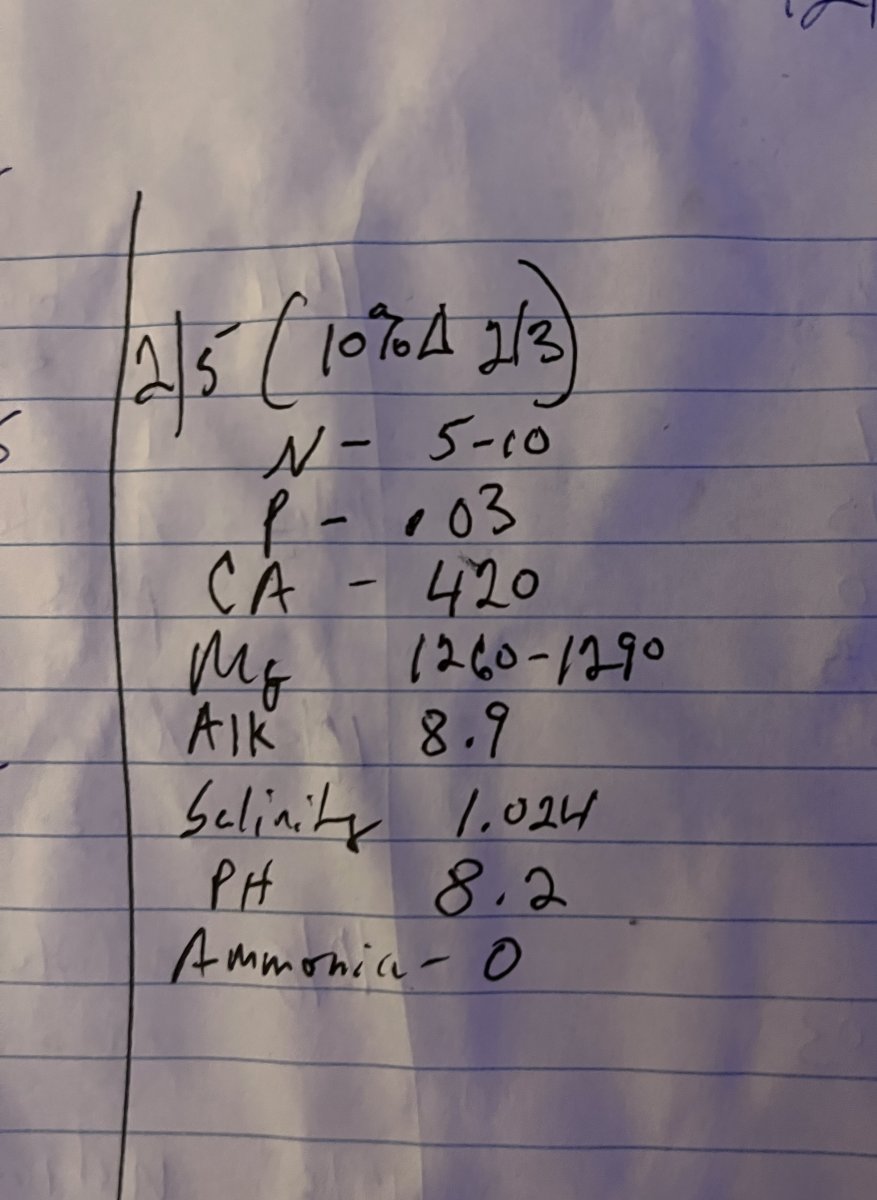 2/5 (10% Δ 2/3)
N - 5-10
P - .03
CA - 420
Mg 1260-1290
Alk 8.9
Salinity 1.024
PH 8.2
Ammonia - 0